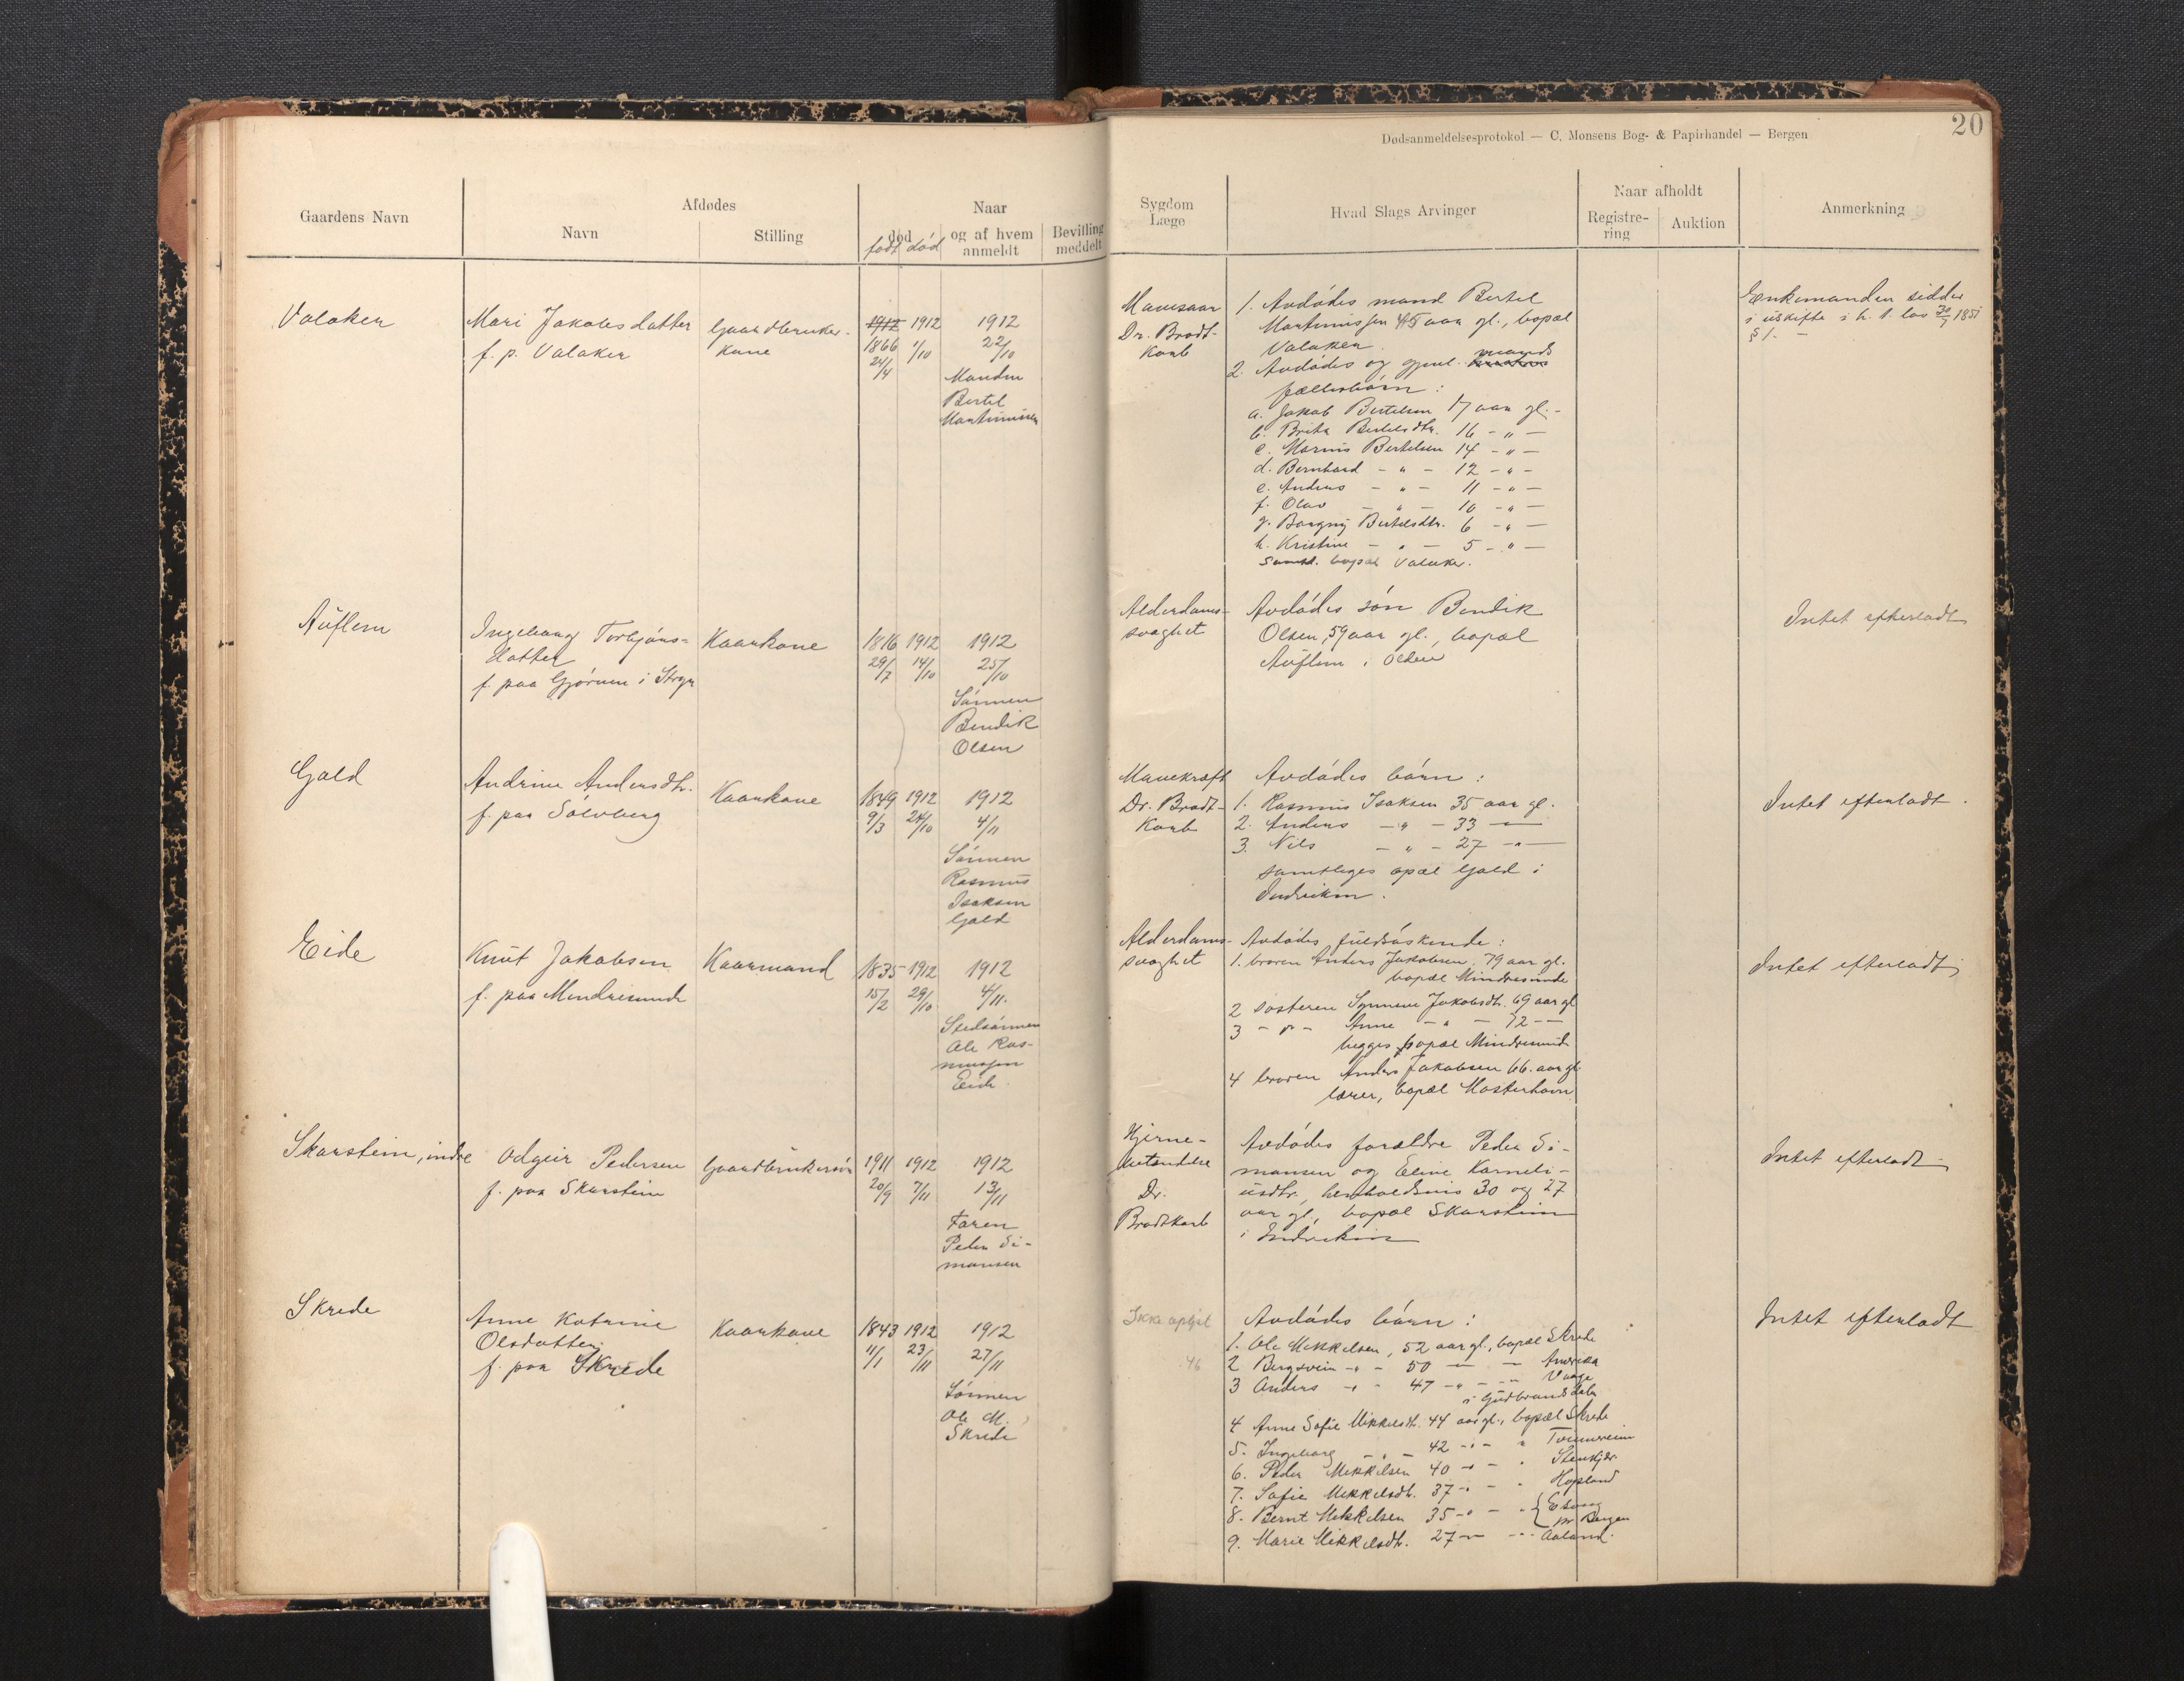 20
Dødsanmeldelsesprotokol — C. Monsens Bog- & Papirhandel — Bergen
Gaardens Navn
Afdødes
Navn
Stilling
Naar
død
født død
og af hvem
anmeldt
Bevilling
meddelt
Sygdom
Læge
Hvad Slags Arvinger
Naar afholdt
Registre-
ring
Auktion
Anmerkning
Valaker
Mari Jakobsdatter
f. p. Valaker
Gaardbruker-
kone
1912 1912
1866 1/10
24/4
1912
22/10
Manden
Bertel
Martinussen
Mavesaar
Dr. Brodt-
korb
1. Avdødes mand Bertel
Martinussen 45 aar gl., bopæl
Valaker
2. Avdødes og gjenl. mands
fællesbørn :
a. Jakob Bertelsen 17 aar gl. -
b. Brita Bertelsdtr. 16 - " -
c. Marius Bertelsen 14 - " -
d. Bernhard - " - 12 - " -
e. Anders - " - 11 - " -
f. Olav - " - 10 - " -
g. Borgny Bertelsdtr. 6 - " -
h. Kristine - " - 5 - " -
Samtl. bopæl Valaker.
Enkemanden sidder
i uskifte i h. t. lov 30/7 1851
§ 1. -
Auflem
Ingeborg Torbjøns-
datter
f. paa Gjørven i Stryn
Kaarkone
1816 1912
29/7 14/10
1912
25/10
Sønnen
Bendik
Olsen
Alderdoms-
svaghet
Avdødes søn Bendik
Olsen, 59 aar gl., bopæl
Auflem i Olden
Intet efterladt
Gald
Andrine Andersdtr.
f. paa Sølvberg
Kaarkone
1849 1912
9/3 24/10
1912
4/11
Sønnen
Rasmus
Isaksen
Gald
Mavekræft
Dr. Brodt-
korb
Avdødes børn :
1. Rasmus Isaksen 35 aar gl.
2. Anders - " - 33 -
3. Nils - " - 27 - " -
samtliges opæl Gald i
Indviken.
Intet efterladt.
Eide
Knut Jakobsen
f. paa Mindresunde
Kaarmand
1835 1912
15/2 29/10
1912
4/11.
Stedsønnen
Ole Ras-
mussen
Eide.
Alderdoms-
svaghet
Avdødes fuldsøskende :
1. broren Anders Jakobsen, 79 aar gl.
bopæl Mindresunde
2 søsteren Synneve Jakobsdtr. 69 aar gl
3 - " - Anne - " - 72 - -
begges bopæl Mindresunde
4 broren Anders Jakobsen 66. aar gl
lærer, bopæl Mosterhavn
Intet efterladt
Skarstein, indre
Odgeir Pedersen
f. paa Skarstein
Gaardbrukersøn
1911 1912
20/9 7/11
1912
13/11
Faren
Peder Si-
monsen
Hjerne-
betændelse
Dr.
Brodtkorb
Avdødes forældre Peder Si-
monsen og Eline Korneli-
usdtr, henholdsvis 30 og 27
aar gl, bopæl Skarstein
i Indviken
Intet efterladt
Skrede
Anne Katrine
Olsdatter
f. paa Skrede
Kaarkone
1843 1912
11/1 23/11
1912
27/11
Sønnen
Ole M.
Skrede
Ikke opgit
46
Avdødes børn :
1. Ole Mikkelsen, 52 aar gl., bopæl Skrede
2 Bergsvein - " - 50 - - Amerika
3 Anders - " - 47 - " - Vaage
i Gudbrandsdalen
4 Anne Sofie Mikkelsdtr. 44 aar gl., bopæl Skrede
5. Ingeborg - " - 42 - " - "
6. Peder Mikkelsen 40 - " - " Stenkjer.
7. Sofie Mikkelsdtr. 37 - " - " Hopland
8. Bernt Mikkelsen 35 - " - "
pr Bergen
9. Marie Mikkelsdtr. 27 - - " Aaland.
Intet efterladt